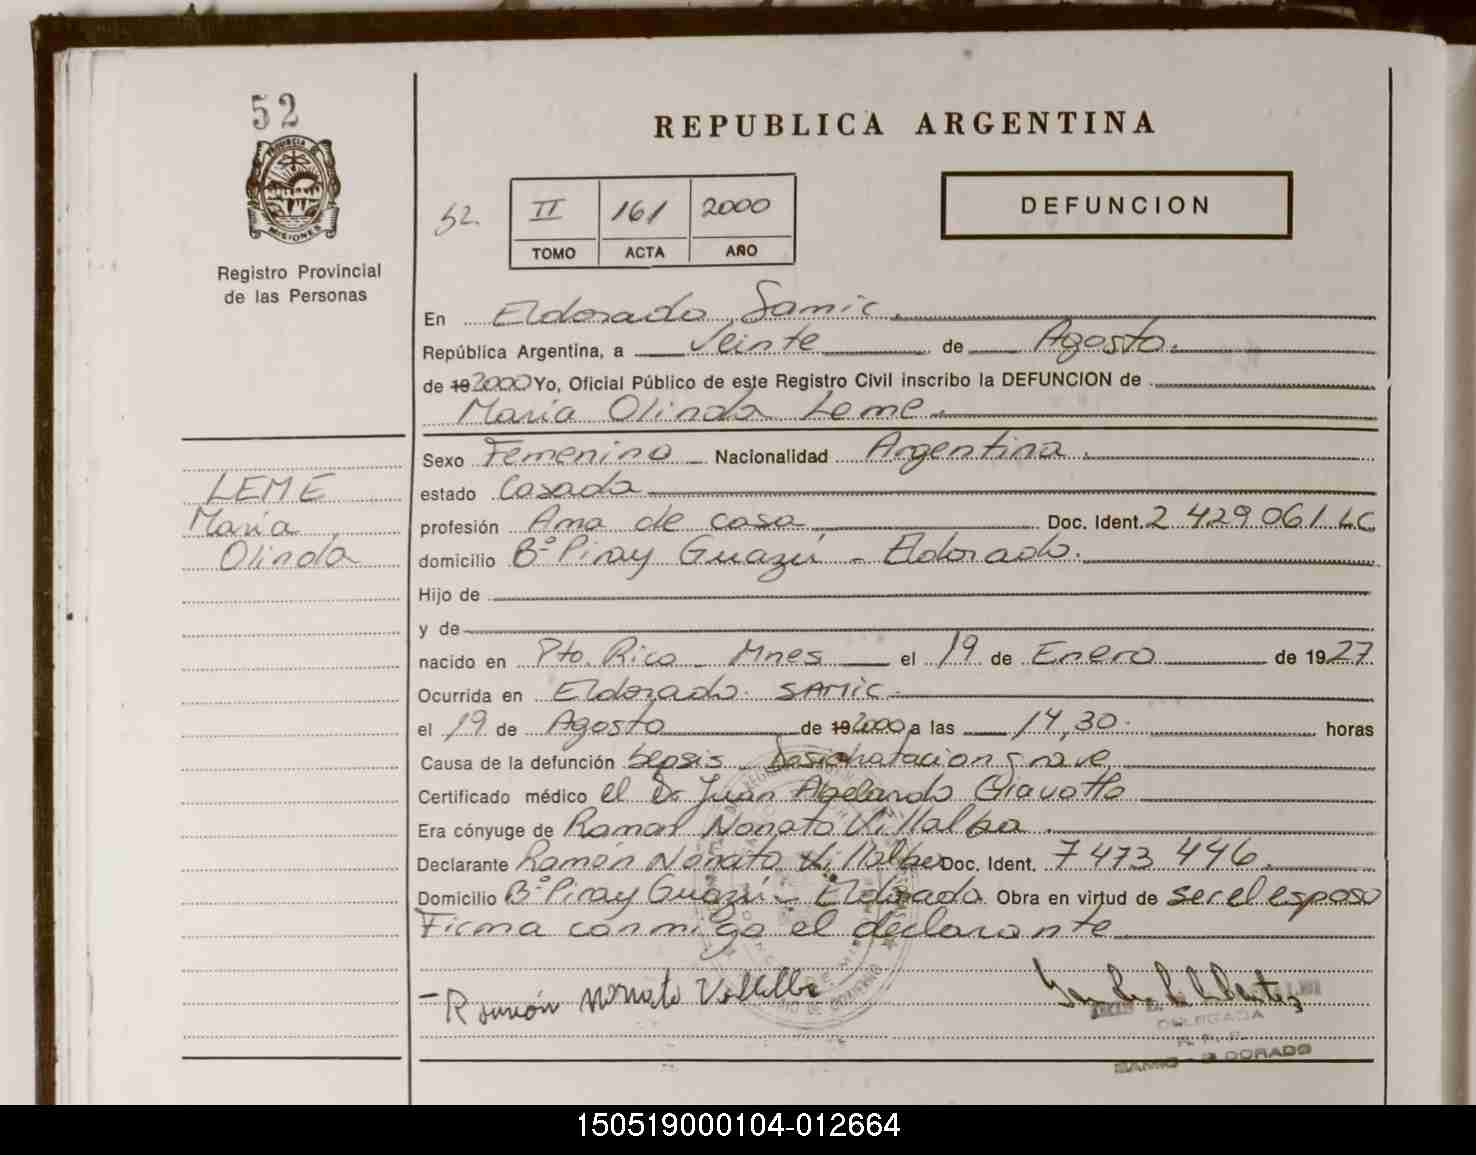 52
PROVINCIA DE
MISIONES
Registro Provincial
de las Personas
LEME
María
Olinda
REPUBLICA ARGENTINA
DEFUNCION
52. II 161 2000
TOMO ACTA AÑO
En Eldorado Samic.
República Argentina, a Veinte de Agosto.
de 19 2000 Yo, Oficial Público de este Registro Civil inscribo la DEFUNCION de
María Olinda Leme.
Sexo Femenino Nacionalidad Argentina.
estado Casada
profesión Ama de casa Doc. Ident. 2 429 061 LC
domicilio Bº Piray Guazú - Eldorado.
Hijo de
y de
nacido en Pto. Rico - Mnes el 19 de Enero de 1927
Ocurrida en Eldorado. SAMIC.
el 19 de Agosto de 19 2000 a las 14,30. horas
Causa de la defunción Sepsis - Desidratacion grave,
Certificado médico el Dr Juan Abelardo
Era cónyuge de Ramon Nonato Villalba.
Declarante Ramón Nonato Villalba Doc. Ident. 7 473 446.
Domicilio Bº Piray Guazú - Eldorado. Obra en virtud de ser el esposo
Firma conmigo el declarante
- Ramón Nonato Villalba
DELEGADA
R. P. P.
SAMIC - ELDORADO
150519000104-012664